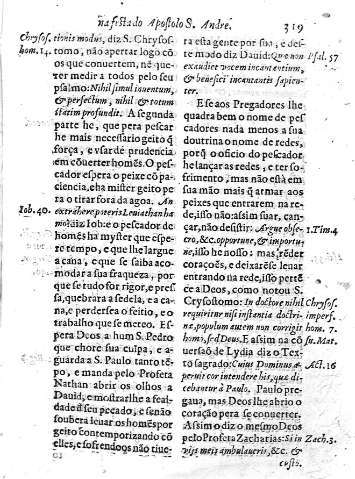 na festa do Apostolo S. Andre. 319
Chrysos.
hom. 14.
Iob. 40.
ctionis modus, diz S. Chrysos
tomo, não apertar logo cõ
os que conuertem, nē que
rer medir a todos pelo seu
psalmo: Nihil simul inuentum,
& perfectum, nihil & totum
statim profundit. A segunda
parte he, que pera pescar
he mister geito mais q̃
força, e vsar dé prudencia
em cõuerter homẽs. O pes
cador espera o peixe cõ pa
ciencia, e ha mister geito pe
ra o tirar fora da agoa. An
extrahere poteris Leuiathan ha
mo? diz Iob: e o pescador de
homẽs ha myster que espe
re tempo, e que lhe largue
a cana, e que se saiba aco
modar a sua fraqueza, por
que se tudo for rigor, e pres
sa, quebrara a sedela, e a ca
na, e perdersea o feitio, e o
trabalho que se mereo. Es
pera Deos a hum S. Pedro
que chore sua culpa, e a-
guarda a S. Paulo tanto tẽ
po, e manda pelo Profeta
Nathan abrir os olhos a
Dauid, e mostrarlhe a feal-
dade d seu peccado, e se não
soubera leuar os homẽs por
geito contemporizando cõ
elles, e sofrendoos não tiue-
ra esta gente por sua, e des-
te modo diz Dauid: Que non
exaudiet vocem incantantium,
& benefici incantantis sapien-
ter.
E se aos Pregadores lhe
quadra bem o nome de pes
cadores nada menos a sua
doutrina o nome de redes,
porq̃ o oficio do pescador
he lançar as redes, e ter so-
frimento, mas não está em
sua mão mais q̃ armar aos
peixes que entrarem na re-
de, isso não: assim suar, can-
çar, não desistir: Argue obse-
cro, &c. opportune, & importu-
ne, isso he nosso: mas rēder
coraçoẽs, e deixarẽse leuar
entrando na rede, isso perten
ce a Deos, como notou S.
Crysostomo: In doctore nihil
requiritur nisi instantia doctri-
næ, populum autem non corrigit
homo, sed Deus. E assim na cõ
uersaõ de Lydia diz o Tex-
to sagrado: Cuius Dominus a-
peruit cor intendere his, quæ di-
cebantur à Paulo. Paulo pre-
gaua, mas Deos lhe abrio o
coração pera se conuerter.
Assim o diz o mesmo Deos
pelo Profeta Zacharias: Si in
vijs meis ambulaueris, &c. &
custo.
Psal. 57
1. Tim. 4
Chrysos.
imperf.
hom. 7.
su. Mat.
Act. 16
Zach. 3.